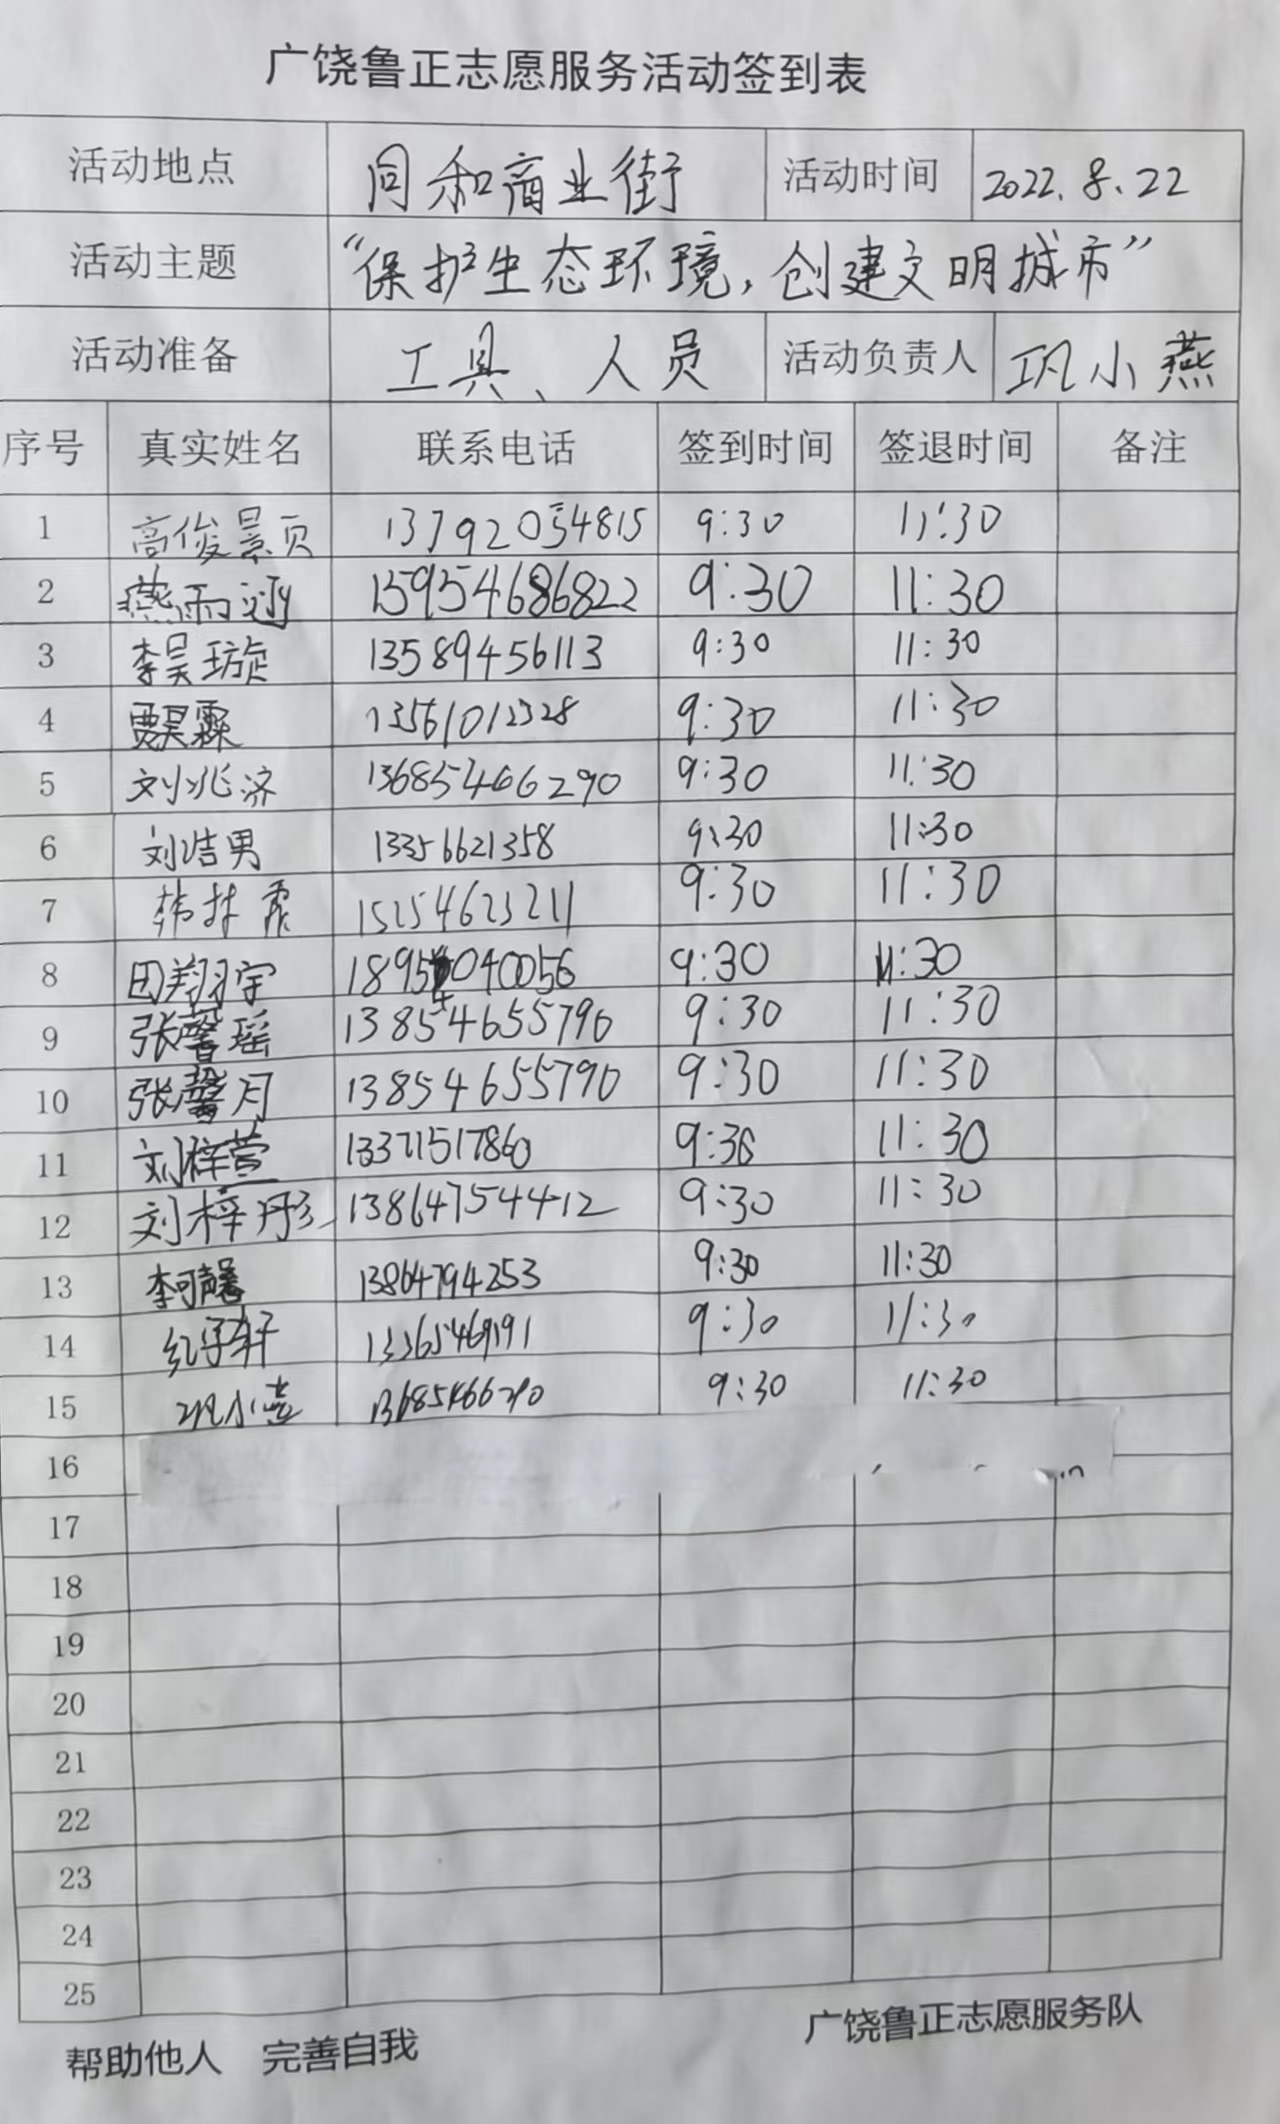 广饶鲁正志愿服务活动签到表
活动地点 同和商业街 活动时间 2022.8.22
活动主题 “保护生态环境,创建文明城市”
活动准备 工具、人员 活动负责人 巩小燕
序号 真实姓名 联系电话 签到时间 签退时间 备注
1 高俊景页 9:30 11:30
2 燕雨涵 15954686822 9:30 11:30
3 李昊璇 13589456113 9:30 11:30
4 贾昊霖 13561012328 9:30 11:30
5 刘兆济 13685466290 9:30 11:30
6 刘浩男 13356621358 9:30 11:30
7 15254623211 9:30 11:30
8 田翔宇 18954040056 9:30 11:30
9 张馨瑶 13854655790 9:30 11:30
10 张馨月 13854655790 9:30 11:30
11 刘梓萱 13371517860 9:30 11:30
12 刘梓彤 13864754412 9:30 11:30
13 李可馨 13864794253 9:30 11:30
14 13365469191 9:30 11:30
15 13685466290 9:30 11:30
16
17
18
19
20
21
22
23
24
25
帮助他人 完善自我 广饶鲁正志愿服务队